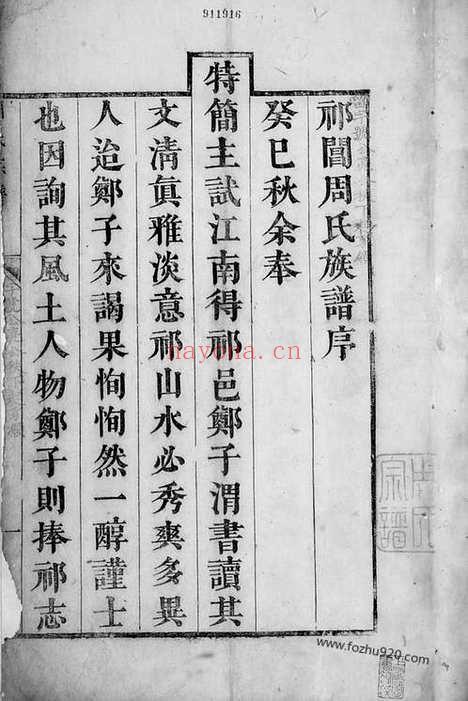 911916
祁閶周氏族譜序
癸巳秋余奉
特簡主試江南得祁邑鄭子渭書讀其
文淸眞雅淡意祁山水必秀爽多異
人迨鄭子來謁果恂恂然一醇謹士
也因詢其風土人物鄭子則捧祁志
nayona.cn
周氏宗譜
www.fozhu920.com